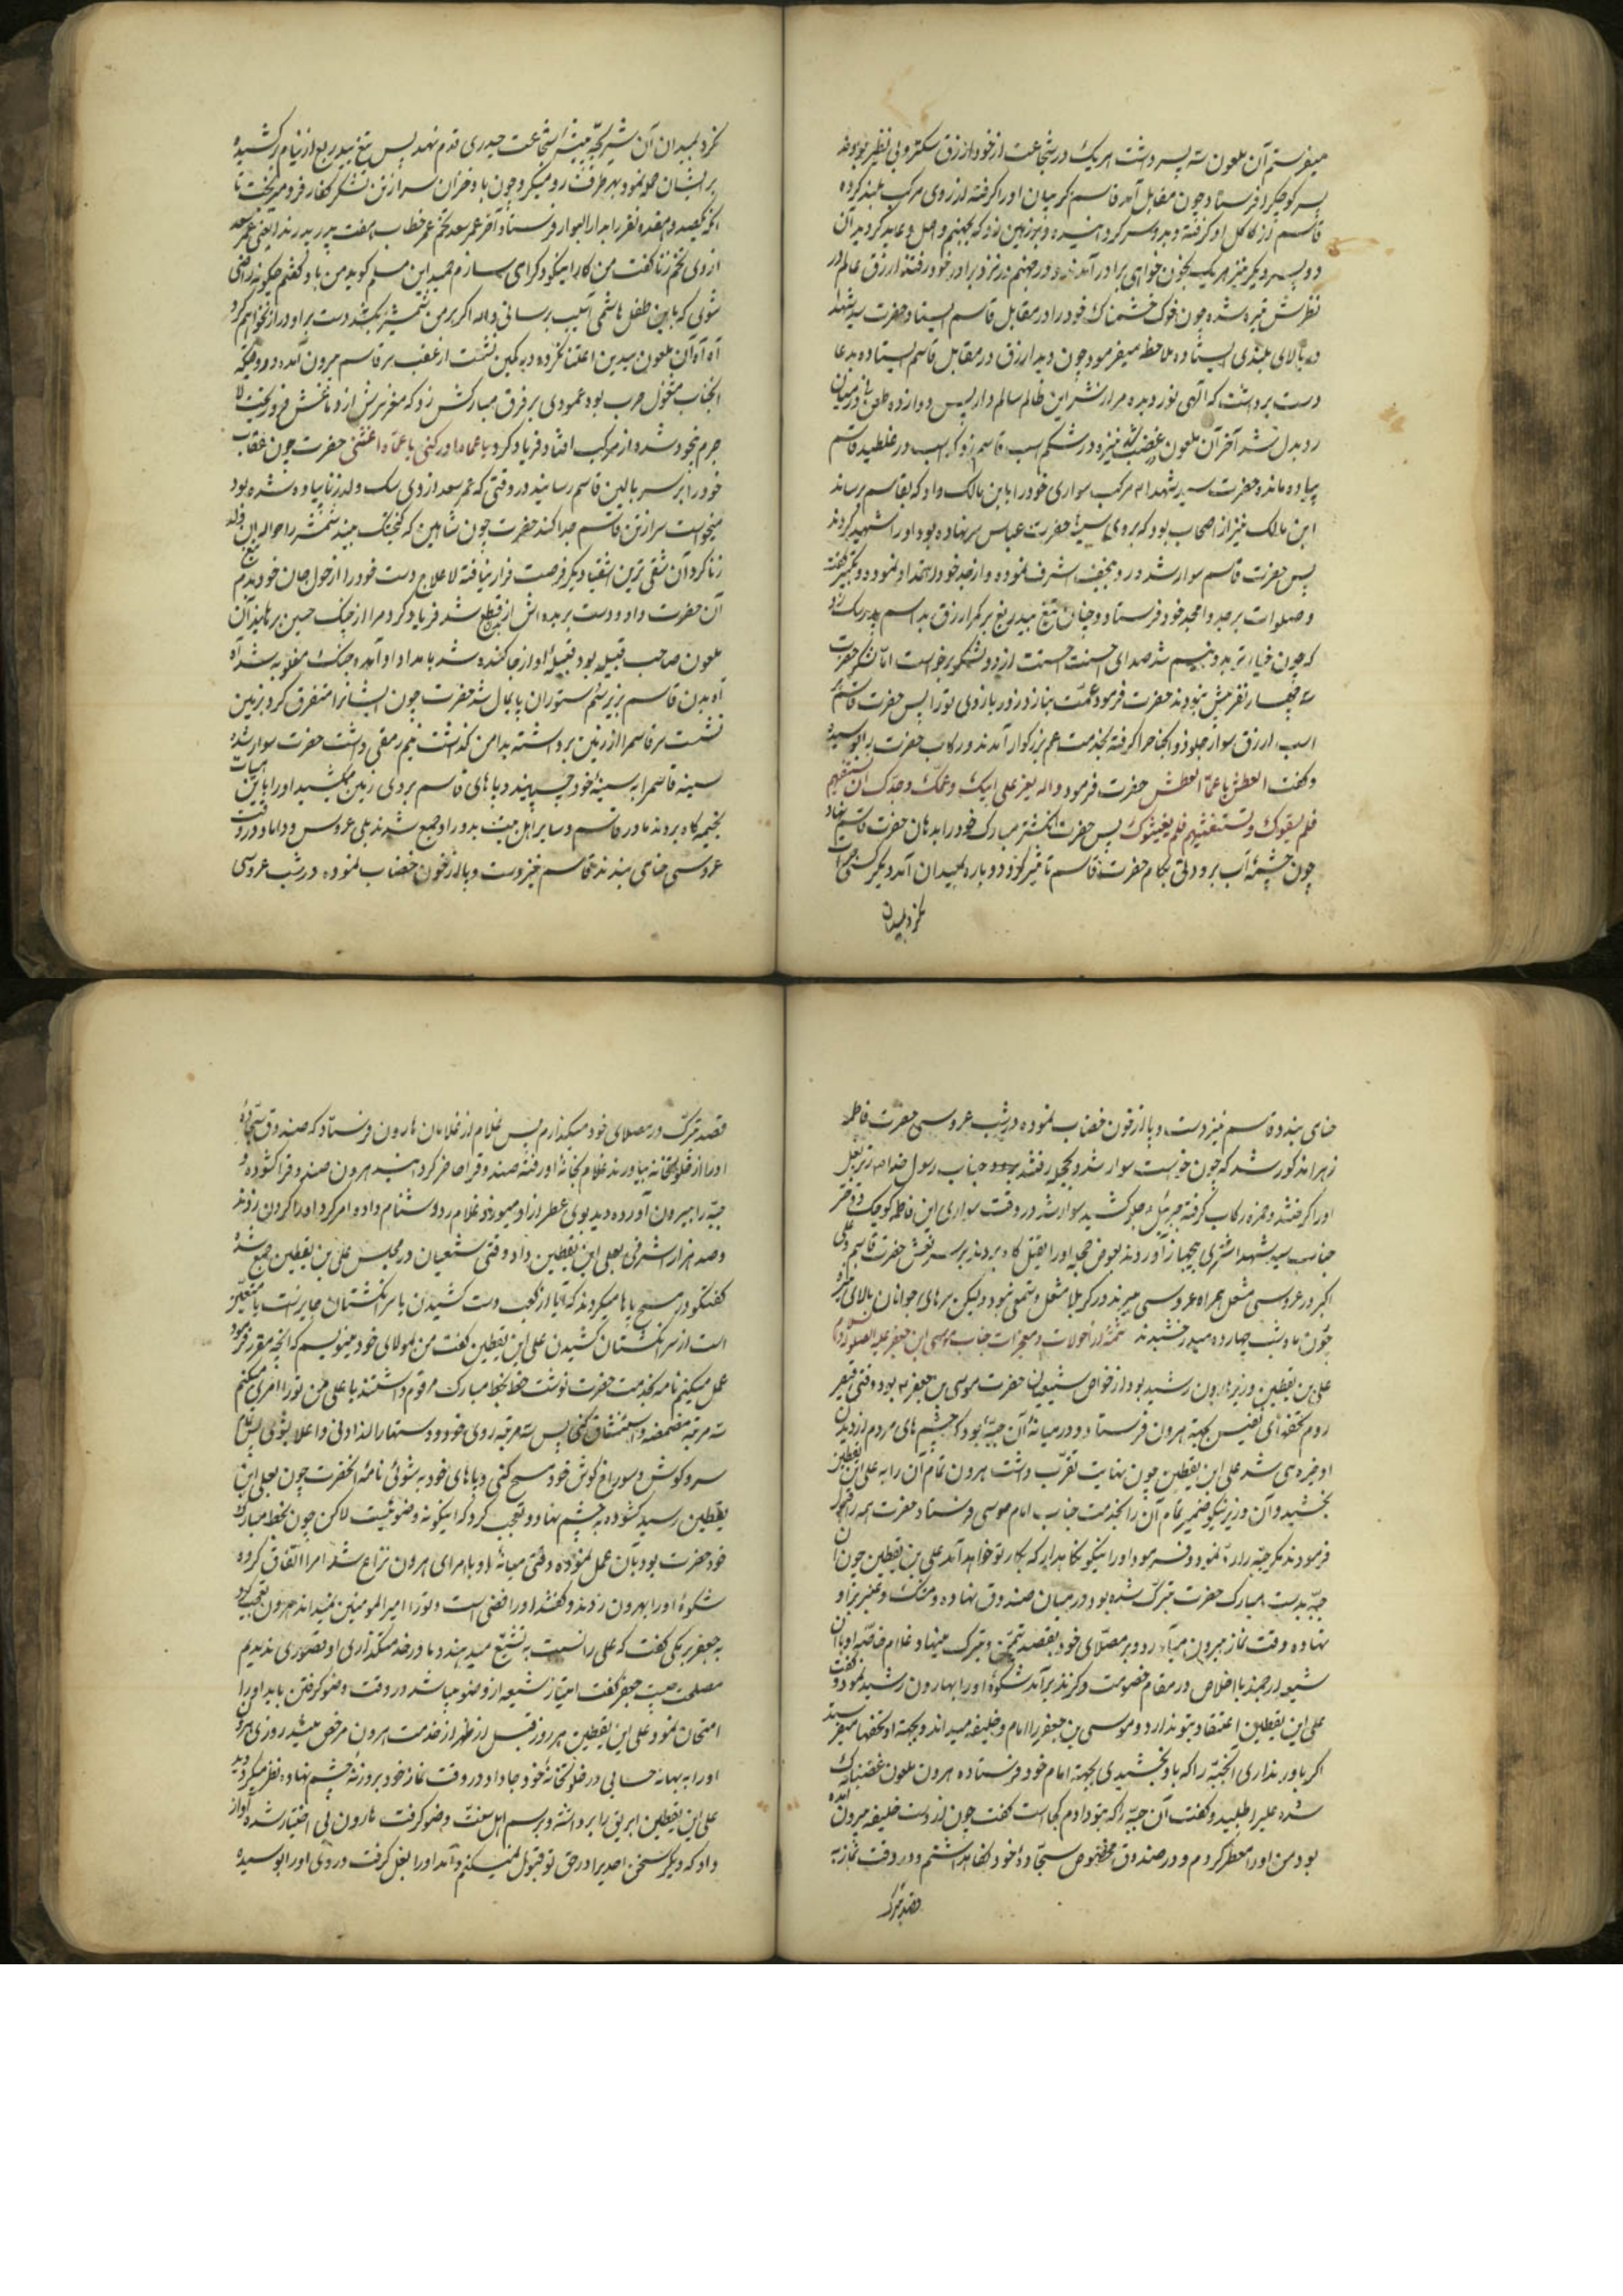 میفرستم آن ملعون سه پسر داشت هریک در شجاعت از خود ازرق سکتر و بی نظیر بودند
پسر کوچکرا فرستاد چون مقابل آمد قاسم کر میان او را کرفته از روی مرکب بلند کرده
قاسم از کاکل او کرفته و بدو سر کردانیده و بر زمین زد که بجهنم واصل و عاید کردید آن
دو پسر دیکر نیز هریک بخون خواهی برادر آمدند و در جهنم در نزد برادر خود رفتند ازرق عالم در
نظرش تیره شده چون خوک خشمناک خود را در مقابل قاسم ایستاد حضرت سید شهدا
در بالای بلندی ایستاده ملاحظه میفرمود چون دید ازرق در مقابل قاسم ایستاده بدعا
دست برداشت که الهی نور دیده مرا از شر این ظالم سالم دار پس دوازده طعن در میان
رد بدل شد آخر آن ملعون غضب شد نیزه در شکم اسب قاسم زد که اسب در غلطید قاسم
پیاده مانده حضرت سید شهدا مرکب سواری خود را بابن مالک داد که بقاسم برساند
ابن مالک نیز از اصحاب بود که بروی سینهٔ حضرت عباس سر نهاده بود او را شهید کردند
پس حضرت قاسم سوار شد رو بنجف اشرف نموده و از جد خود استمداد نمود و تکبیر گفت
و صلوات بر جد و امجد خود فرستاد و چنان تیغ بیدریغ بر کمر ازرق بد اسم بدرک زد
که چون خیار تر بدو نیم شد صدای احسنت احسنت از دو لشکر برخواست اما لشکر حضرت
سه چهار نفر بیش نبودند حضرت فرمود عمت بنازد زور بازوی تو را پس حضرت قاسم
اسب ازرق سوار جلو ذوالجناح را کرفته بخدمت عم بزرکوار آمدند و رکاب حضرت را بوسیده
و کفت العطش یا عماه العطش حضرت فرمود والله یعز علی ابیک و عمک و جدک ان تستغیثهم
فلم یسقوک و تستغیثهم فلم یغیثوک پس حضرت انکشتر مبارک خود را بدهان حضرت قاسم نهاد
چون چشمهٔ آب برودتی بکام حضرت قاسم تاثیر کرد و دوباره بمیدان آمد دیکر کسی جرات
نکرد بمیدان
نکرد بمیدان آن شیر بچه بیشهٔ شجاعت حیدری قدم نهد پس تیغ بیدریغ از نیام برکشیده
بر ایشان حمله نمود بهر طرف رو میکرد چون باد خزان سر از تن لشکر کفار فرو میریخت تا
آنکه یکصد و هفده نفر را بدار البوار فرستاد آخر عمر سعد تخم عمر خطاب هفت پدر بدرند یعنی عمر سعد
ازدی تخم زنا کفت من کار اینکودک را میسازم حمید ابن مسلم کوید من باو کفتم چکونه راضی
شوی که باین طفل هاشمی آسیب برسانی والله اکر بر من شمشیر بکشد دست بر او دراز نخواهم کرد
آه آه آن ملعون بدین اعتنا نکرده در کمین نشست از عقب سر قاسم بیرون آمد در وقتیکه
آنجناب مشغول حرب بود عمودی بر فرق مبارکش زد که مغز سرش از دماغش فرو ریخت لا
جرم بیخود شده از مرکب افتاد فریاد کرد یا عماه ادرکنی یا عماه اغثنی حضرت چون عقاب
خود را بر سر بالین قاسم رسانید در وقتی که عمر سعد ازدی سک ولد زنا پیاده شده بود
میخواست سر از تن قاسم جدا کند حضرت چون شاهین که کنجشک بیند شمشیر را حواله بان ولد
زنا کرد آن شقی ترین اشقیا دیکر فرصت فرار نیافته لاعلاج دست خود را از هول جان خود بدم تیغ
آن حضرت داد و دست بریده اش از تن قطع شد فریاد کرد مرا از چنک حسین برهانید آن
ملعون صاحب قبیله بود قبیله او از جا کنده شد بامداد او آمده جنک مغلوبه شد آه
آه بدن قاسم بزیر سم ستوران پایمال شد حضرت چون ایشانرا متفرق کرد بزمین
نشست سر قاسم را از زمین برداشته بدامن کذاشت نیم رمقی داشت حضرت سوار شده
سینه قاسم را به سینه خود چسپانید و پاهای قاسم بروی زمین میکشید او را باین هیات
بخیمه کاه بردند مادر قاسم و سایر اهل بیت بدور او جمع شدند بلی عروس و داماد در وقت
عروسی حنا می بندند قاسم نیز دست و پا از خون خضاب نموده در شب عروسی
حنا می بندد قاسم نیز دست و پا از خون خضاب نموده در شب عروسی حضرت فاطمه
زهرا مذکور شد که چون خواست سوار شد و بحجله رفتند بردند جناب رسول خدا زیر بغل
او را کرفتند و حمزه رکاب کرفته جبرئیل جلو کشید سوار شد در وقت سواری این فاطمه کوچک دختر
جناب سید شهدا شتری بیجهاز آوردند بعوض حجله او را بقتل کاه بردند بر سر نعش حضرت قاسم و علی
اکبر در عروسی مشعل همراه عروسی میبرند در کربلا مشعل و شمعی نبود و لیکن سرهای جوانان بالای نیزه
چون ماه شب چهارده میدرخشیدند تتمهٔ از احوالات و معجزات جناب موسی ابن جعفر علیه الصلوة و السلام
علی بن یقطین وزیر هارون رشید بود از خواص شیعیان حضرت موسی بن جعفر بود وقتی قیصر
روم تحفهٔ نفیس بجهة هرون فرستاد و در میانهٔ آن جبهٔ بود که چشم های مردم از دیدن
او خیره می شد علی ابن یقطین چون نهایت تقرب داشت هرون تمام آن را به علی ابن یقطین
بخشید و آن وزیر نیکو ضمیر تمام آن را بخدمت جناب امام موسی فرستاد حضرت همه را قبول
فرمودند مکر جبه را رد نمود و فرمود او را نیکو نکاهدار که بکار تو خواهد آمد علی بن یقطین چون آن
جبه بدست مبارک حضرت تبرک شده بود در میان صندوق نهاده و مشک و عنبر بر او
نهاده وقت نماز بیرون میآورد و بر مصلای خود بقصد تیمن و تبرک مینهاد غلام خاصه او بان
شیعه ارجمند با اخلاص در مقام خصومت و کزند برآمد شکوهٔ او را بهارون رشید نمود و کفت
علی ابن یقطین اعتقاد بتو ندارد و موسی بن جعفر را امام و خلیفه میداند و بجهة او تحفها میفرستد
اکر باور نداری انجبه را که باو بخشیدی بجهة امام خود فرستاده هرون ملعون غضبناک
شده علیرا طلبید و کفت آن جبه را که بتو دادم کجاست کفت چون از دست خلیفه بیرون آمده
بود من او را معطر کردم و در صندوق مخصوص سجاده خود نکاه داشتم و در وقت نماز به
قصد تبرک
قصد تبرک در مصلای خود میکذارم پس غلام از غلامان هارون فرستاد که صندوق سجادهٔ
او را از خلوتخانه بیاورند غلام بخانهٔ او رفته صندوق را حاضر کردانید هرون صندوق را کشوده و
جبه را بیرون آورده دید بوی عطر از او میوزد غلام را دشنام داده و امر کرد او را کردن زدند
و صد هزار اشرفی بعلی ابن یقطین داد وقتی شیعیان در مجلس علی بن یقطین جمع شده
کفتکو در مسح پاها میکردند که آیا از کعب دست کشیدن یا سر انکشتان جایز است یا متعین
است از سر انکشتان کشیدن علی ابن یقطین کفت من بمولای خود مینویسم که آنچه مقرر فرمود
عمل میکنیم نامه بخدمت حضرت نوشت حضرت بخط مبارک مرقوم داشتند یا علی من تو را امر میکنم
سه مرتبه مضمضه و استنشاق کنی پس سه مرتبه روی خود و دستها را از ادنی و اعلا بشوی پس تمام
سر و کوش و سوراخ کوش خود مسح کنی و پاهای خود به شوئی نامهٔ آنحضرت چون بعلی ابن
یقطین رسید کشوده به چشم نهاد و تعجب کرد که اینکونه وضو نیست لاکن چون بخط مبارک
خود حضرت بود بآن عمل نموده وقتی میانهٔ او با امرای هرون نزاع شد امرا اتفاق کرده
شکوهٔ او را بهرون زدند و کفتند او رافضی است و تو را امیر المومنین نمیداند هرون تعجب کرد
به جعفر برمکی کفت که علی را نسبت به تشیع میدهند و ما در خدمتکذاری او قصوری ندیدیم
مصلحت چیست جعفر کفت امتیاز شیعه از وضو میباشد در وقت وضو کرفتن باید او را
امتحان نمود علی ابن یقطین هر روز قبل از ظهر از خدمت هرون مرخص میشد روزی هرون
او را به بهانه حسابی در خلوتخانهٔ خود جا داد در وقت نماز خود بروزنهٔ چشم نهاده نظر میکرد دید
علی ابن یقطین ابریق را برداشته و برسم اهل سنت وضو کرفت هارون بی اختیار شده آواز
داد که دیکر سخن احدیرا در حق تو قبول نمیکنم و آمد او را بغل کرفت و روی او را بوسیده